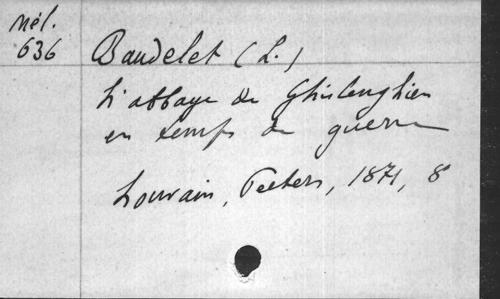 Mél.
636
Baudelet (L.)
L'abbaye de Ghislenghien
en temps de guerre
Louvain, Peeters, 1871, 8